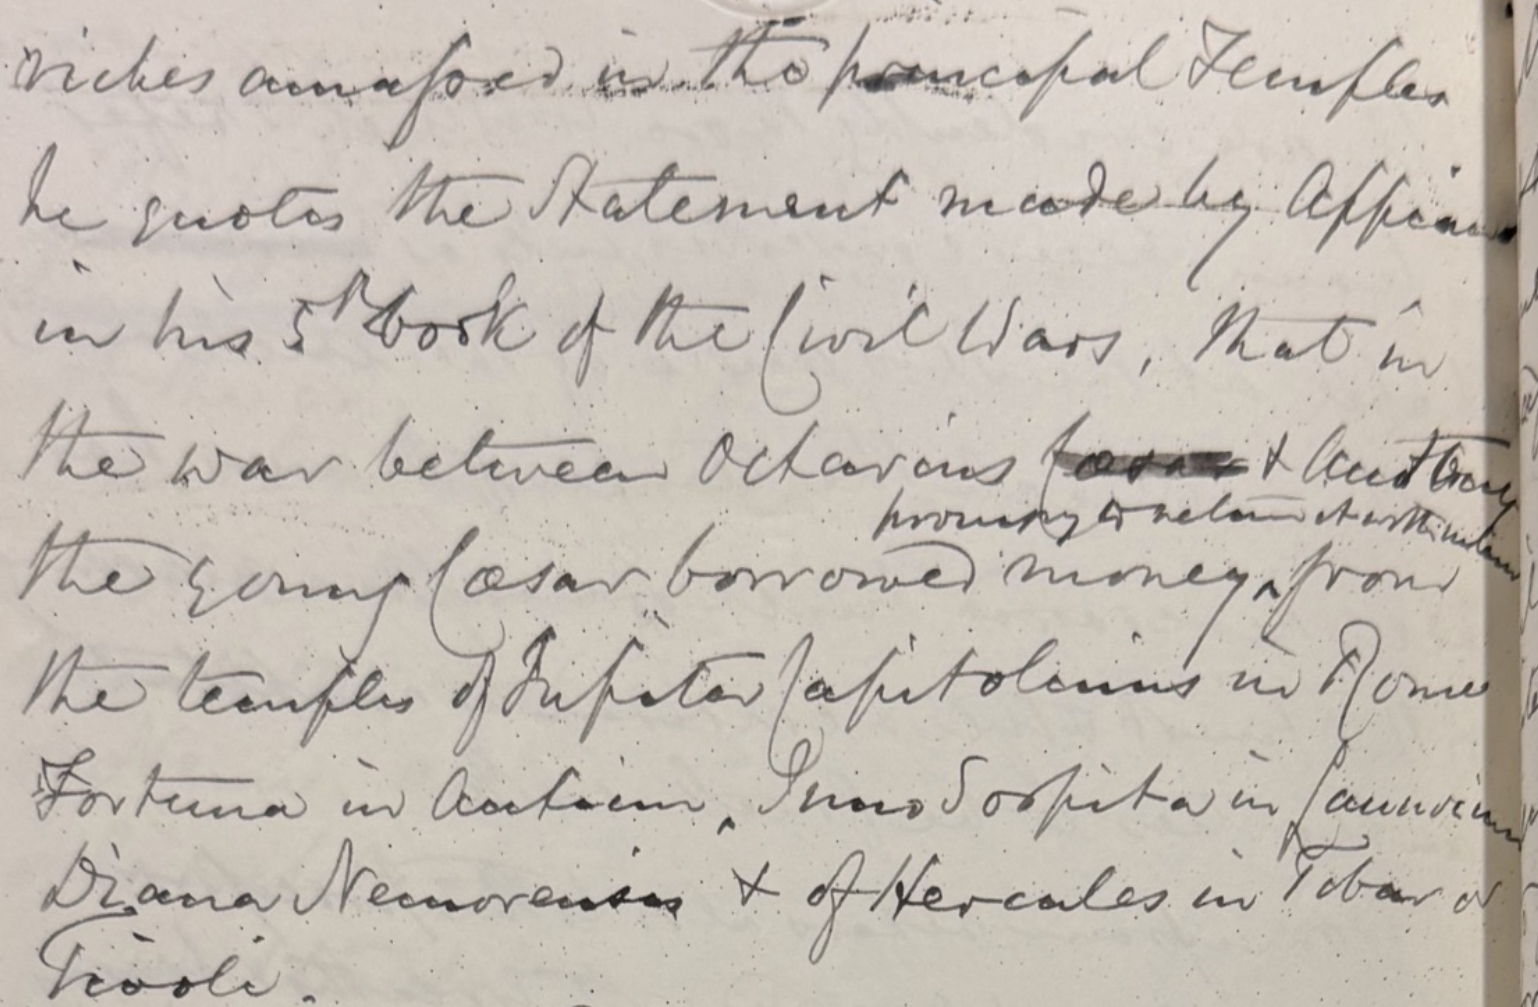 riches amassed in the principal Temples
he quotes the Statement made by Appian
in his 5th book of the Civil Wars, that in
the war between Octavius Cæsar & Anthony
promising to return it with
the young Cæsar borrowed money, from
the temples of Jupiter Capitolinus in Rome
Fortuna in Antium, Juno Sospita in Lanuvium
Diana Nemorensis & of Hercules in Tibur or
Tivoli.